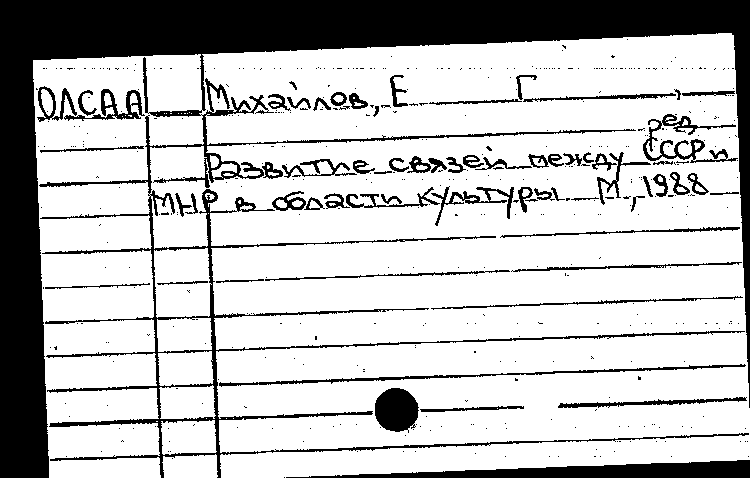 ОЛСАА Михайлов, Е Г ,
ред
Развитие связей между СССР и
МНР в области культуры М, 1988